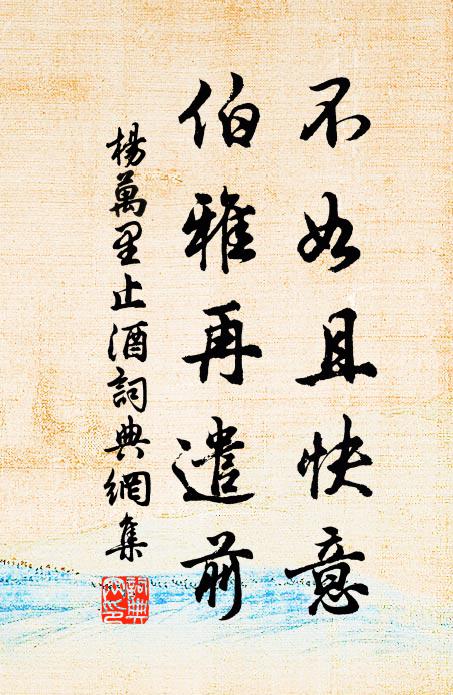 不如且快意
伯雅再遣前
楊萬里止酒詞典網集